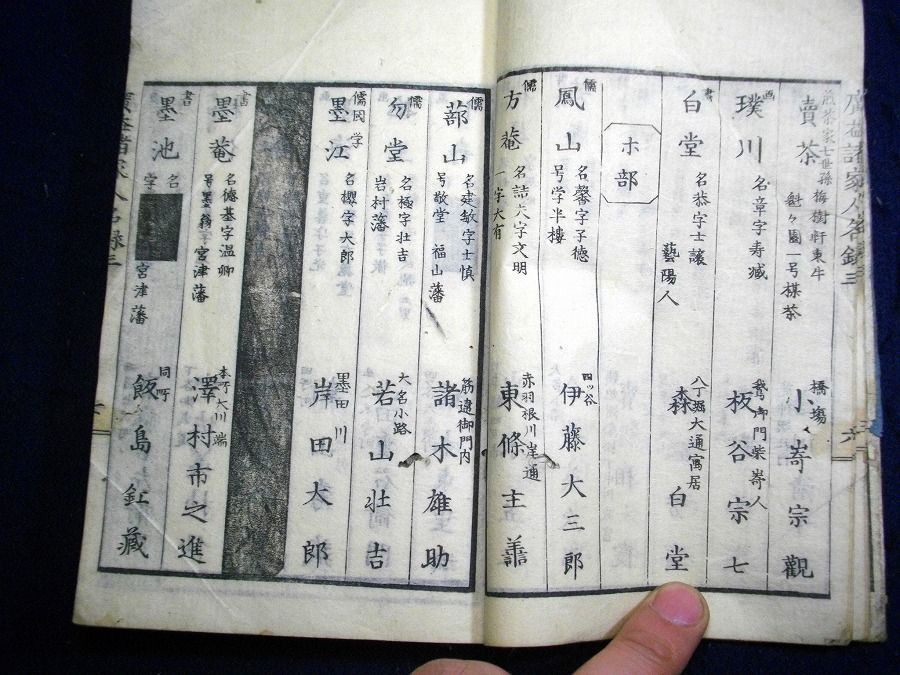 広益諸家人名録三
煎茶家七世孫
賣茶
梅樹軒東牛
魁々園一号楳茶
橋場
小嵜宗觀
画
璞川
名章字寿減
板谷宗七
書
白堂
名恭字士讓
藝陽人
八丁堀大通寓居
森白堂
ホ部
儒
鳳山
名馨字子德
号学半樓
四ッ谷
伊藤大三郎
儒
方菴
名詰六字文明
一字大有
赤羽根川崖通
東條主善
儒
蔀山
名建敏字士慎
号敬堂 福山藩
筋違御門内
諸木雄助
儒
勿堂
名極字壮吉
岩村藩
大名小路
若山壮吉
儒国学
墨江
名櫻字太郎
墨田川
岸田太郎
書
墨菴
名德基字温卿
号墨翁 宮津藩
本町大川端
澤村市之進
書
墨池
名
字
宮津藩
同町
飯島釭藏
広益諸家人名録三